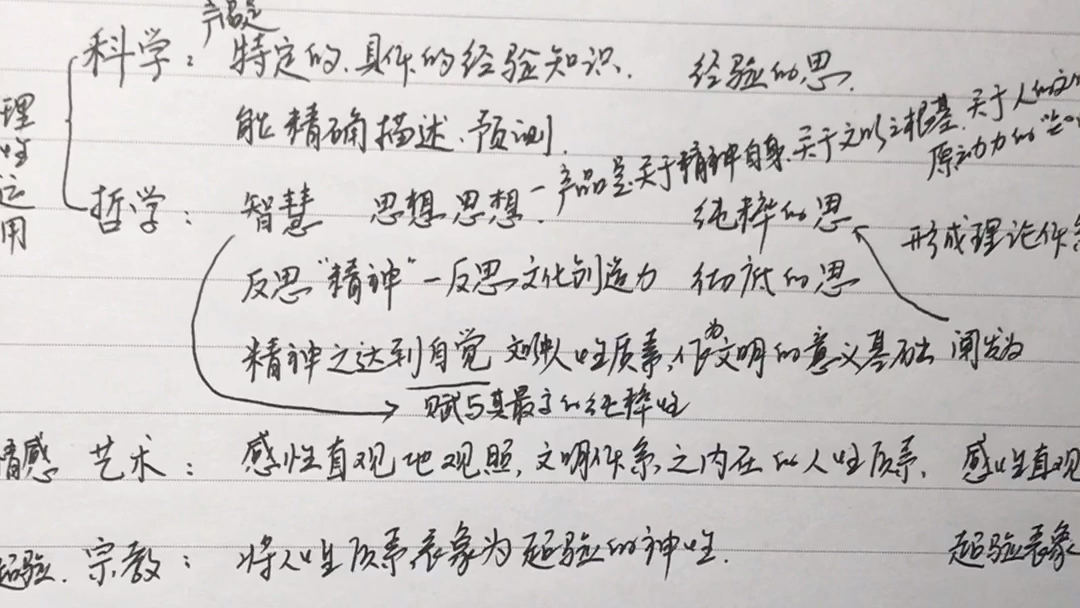 产品是
科学：特定的、具体的经验知识. 经验的思.
能精确描述、预测.
理性运用
哲学：智慧 思想思想－产品是关于精神自身、关于文明之根基、关于人的
原动力的
纯粹的思
形成理论体系
反思"精神"－反思文化创造力 彻底的思
精神之达到自觉 人性质素,作为文明的意义基础 阐发为
赋与其最高的纯粹性
情感 艺术：感性直观地观照,文明体系之内在的人性质素, 感性直观
超验. 宗教：将人性质素表象为超验的神性. 超验表象